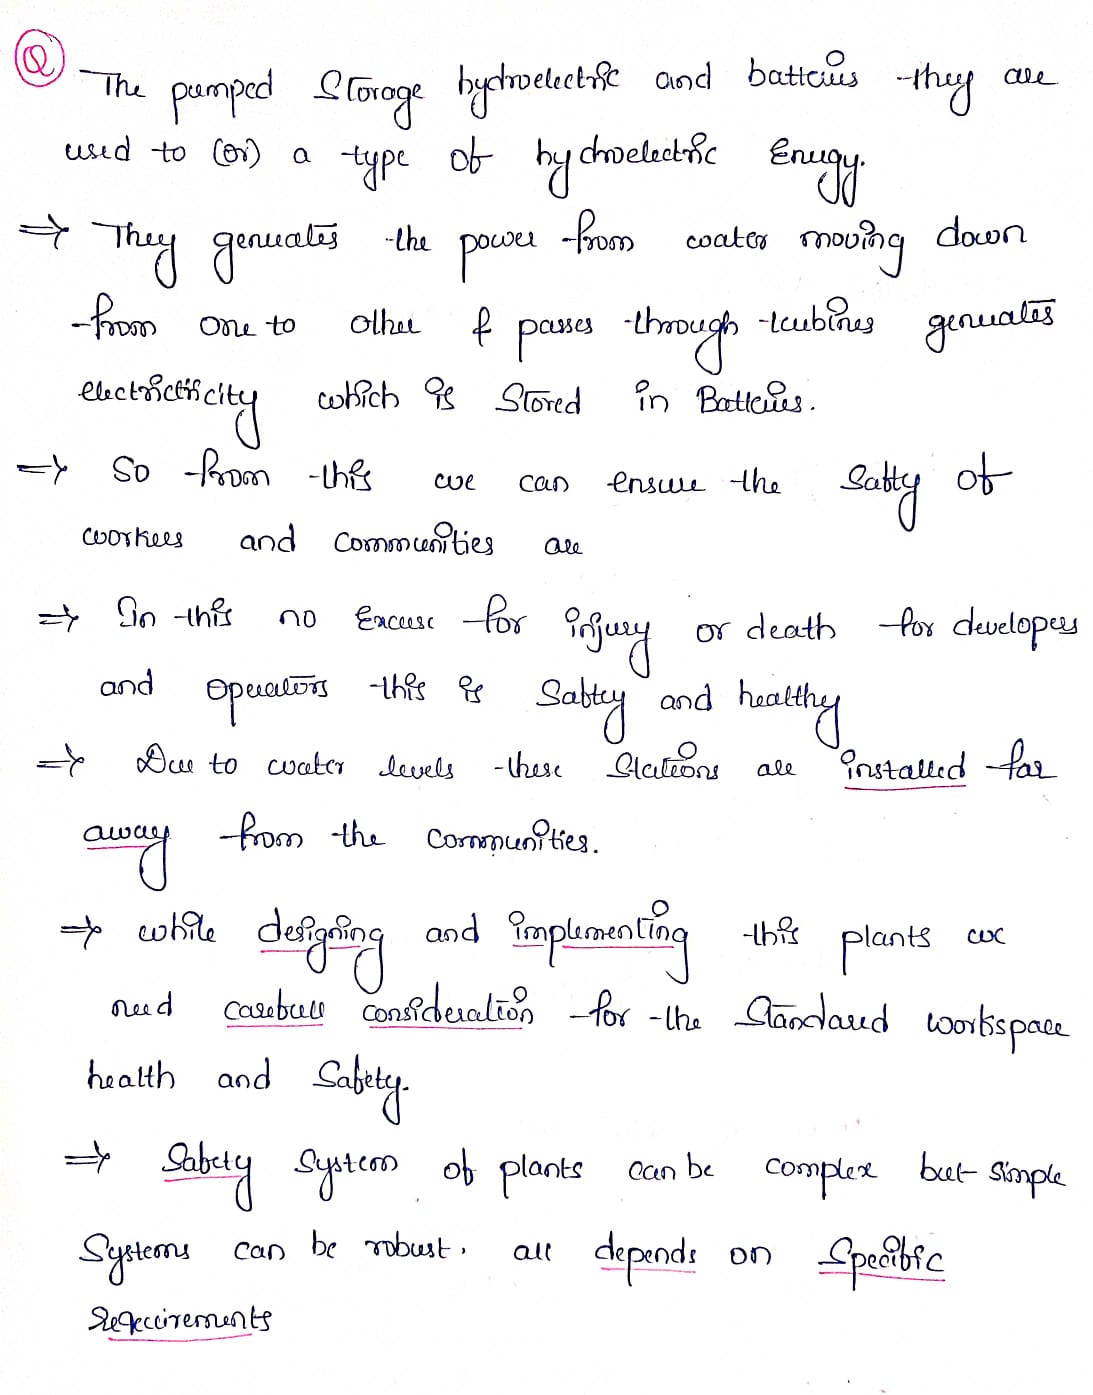 Q
The pumped Storage hydroelectric and batteries they are
used to (or) a type of hydroelectric Energy.
⇒ They generates the power from water moving down
from one to other & passes through turbines generates
electricticity which is stored in Batteries.
⇒ So from this we can ensure the Safty of
workers and communities are
⇒ In this no Excuse for injury or death for developers
and operators this is Saftey and healthy
⇒ Due to water levels these Stations are installed far
away from the communities.
⇒ while designing and implementing this plants we
need carefull consideration for the Standared workspace
health and Safety.
⇒ Safety System of plants can be complex but simple
Systems can be robust. all depends on Specific
Requirements